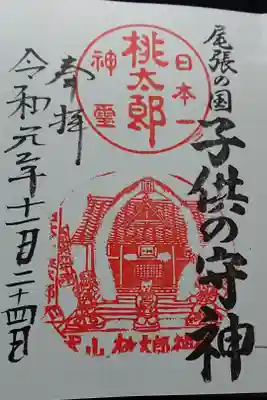 尾張の国
子供の守神
日本一
桃太郎
神霊
奉拝
令和元年十一月二十四日
犬山桃太郎神社